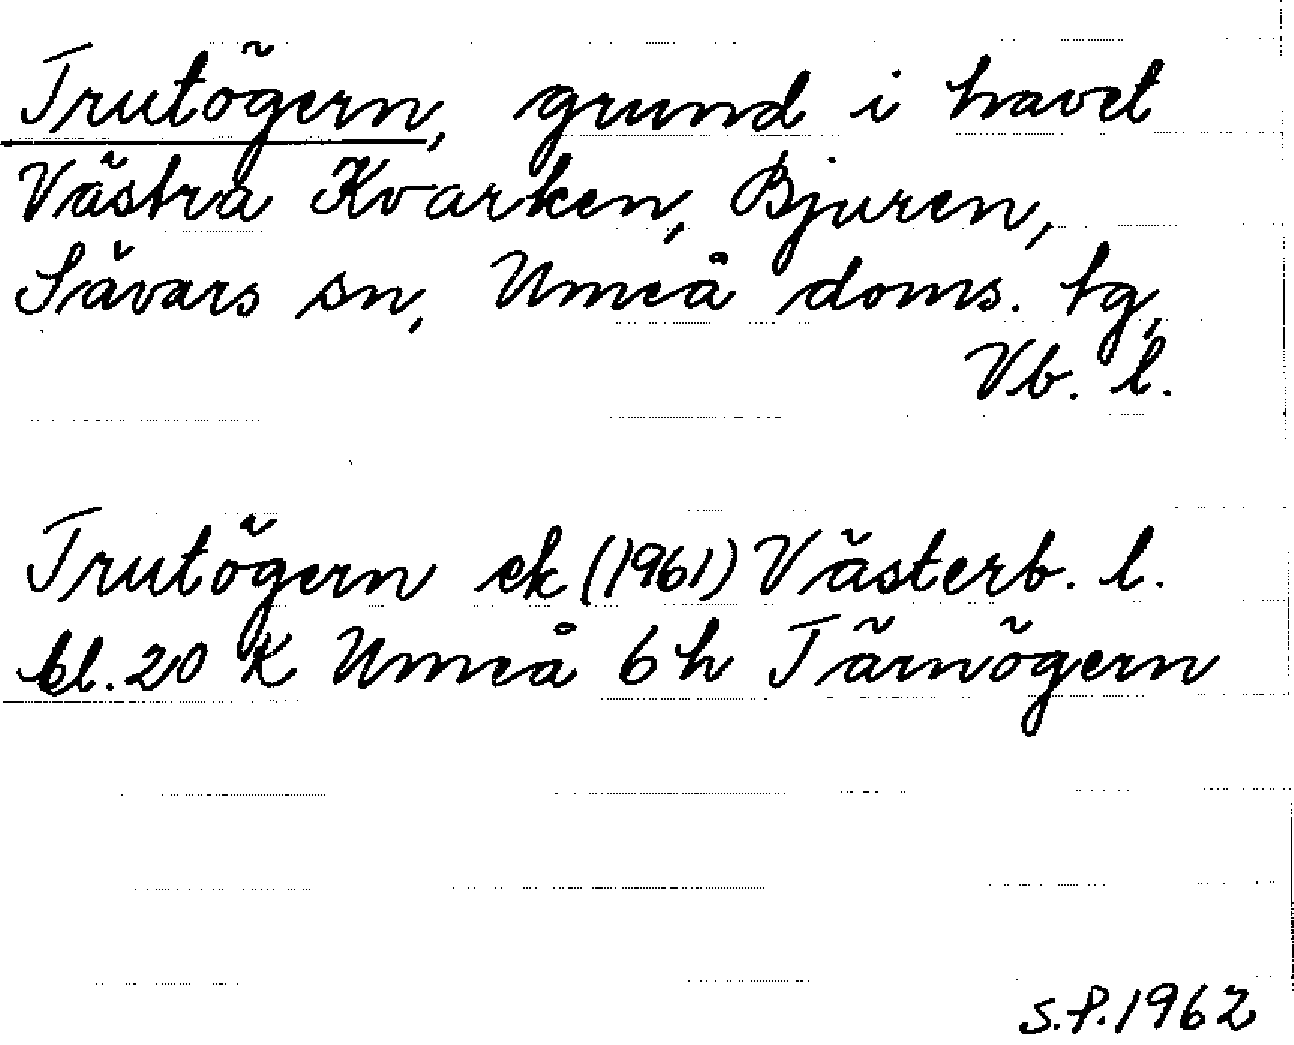 Trutögern, grund i havet
Västra Kvarken, Bjuren,
Sävars sn, Umeå doms. tg,
Vb. l.
Trutögern ek (1961) Västerb. l.
bl. 20 K Umeå 6 h Tärnögern
S.P. 1962